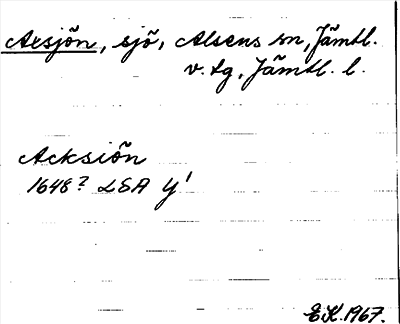 Acksjön, sjö, Alsens sn, Jämtl.
v. tg, Jämtl. l.
Acksiön
1648? LSA Y'
EK. 1967.